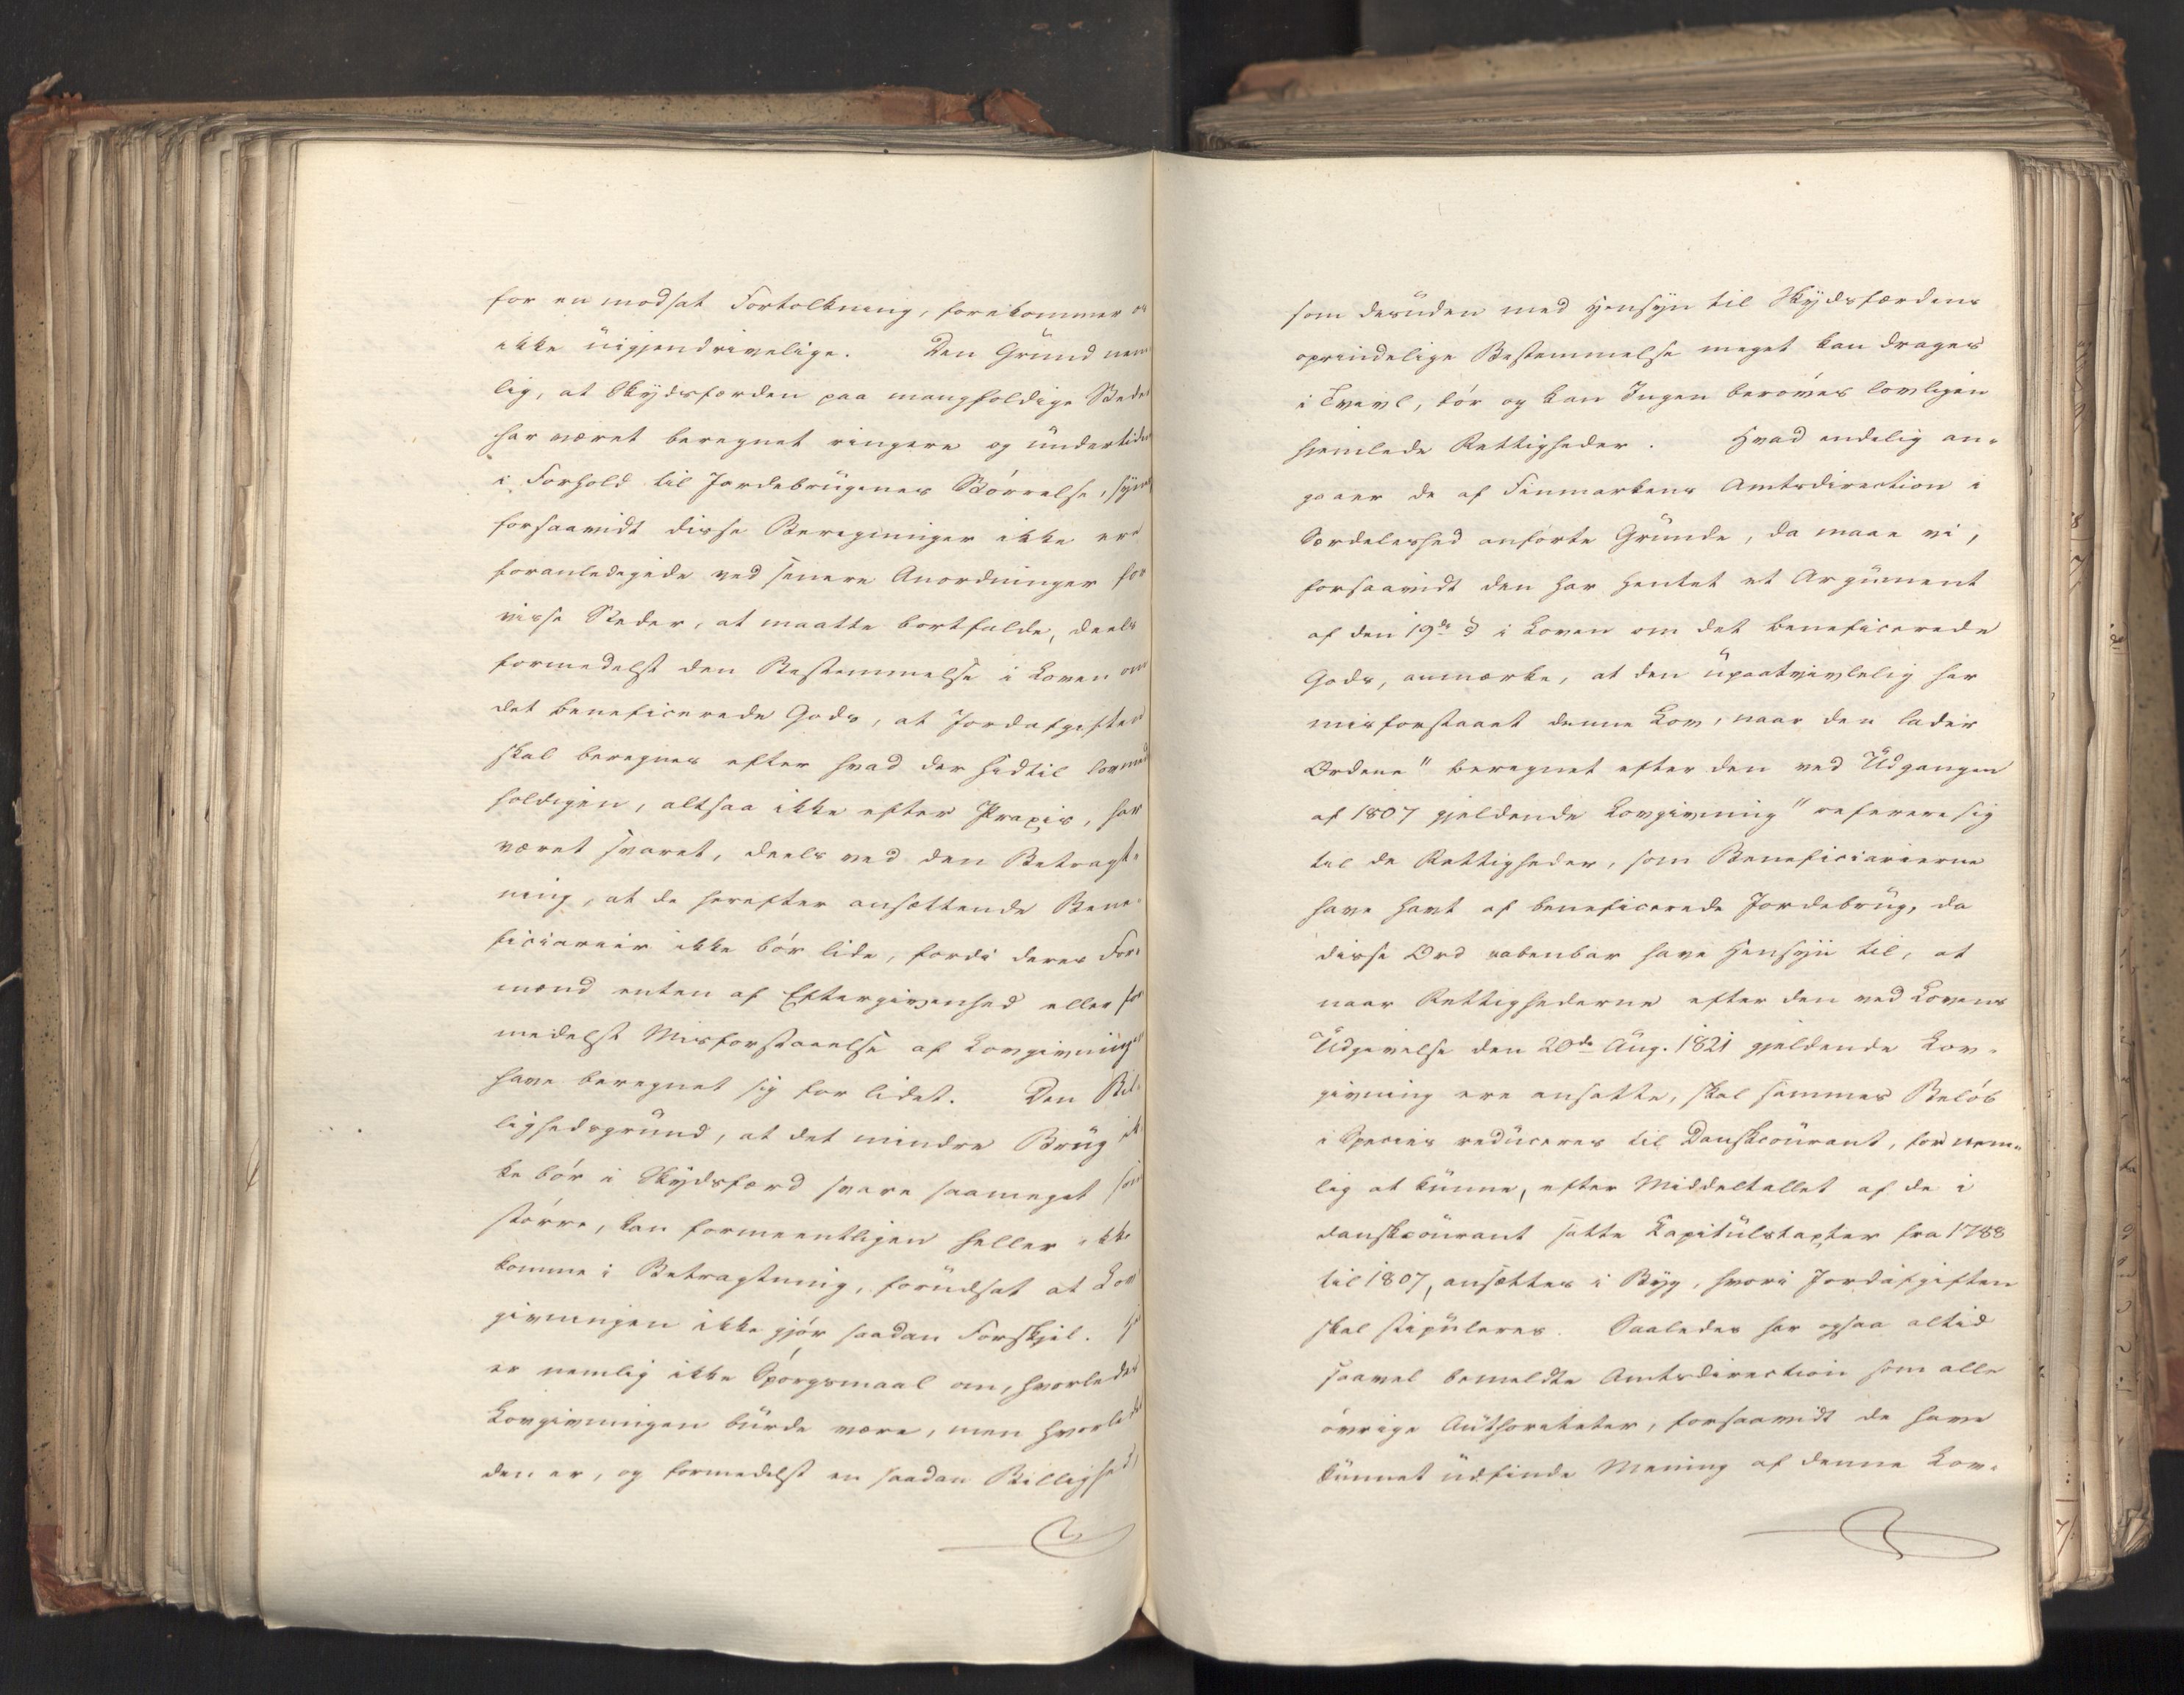 for en modsat Fortolkning, forekommer os
ikke uigjendrivelige. Den Grund nem¬
lig, at Skydsfærden paa mangfoldige Steder
har været beregnet ringere og undertiden
i Forhold til Jordebrugenes Størrelse, synes
forsaavidt disse Beregninger ikke ere
foranledigede ved senere Anordninger for
visse Steder, at maatte bortfalde, deels
formedelst den Bestemmelse i Loven om
det beneficerede Gods, at Jordafgiften
skal beregnes efter hvad der hidtil lovmed
holdigen, altsaa ikke efter Praxis, har
været svaret, deels ved den Betragt¬
ning, at de herefter ansættende Bene¬
ficiarier ikke bør lide, fordi deres For¬
mænd enten af Eftergivenhed eller for
medelst Misforstaaelse af Lovgivningen
have beregnet sig for lidet. Den Bil¬
lighedsgrund, at det mindre Brug ik
ke bør i Skydsfærd svare saameget som
større, kan formeentligen heller ikke
komme i Betragtning, forudsat at Lov
givningen ikke gjør saadan Forskjel.
er nemlig ikke Spørgsmaal om, hvorledes
Lovgivningen burde være, men hvorledes
den er, og formedelst en saadan Billighed,
som desuden med Hensyn til Skydsfærdens
oprindelige Bestemmelse meget kan drages
i Tvivl, bør og kan Ingen berøves lovligen
hjemlede Rettigheder. Hvad endelig an¬
gaaer de af Finmarkens Amtsdirection i
Særdeleshed anførte Grunde, da maae vi,
forsaavidt den har hentet et Argument
af den 19de § i Loven om det beneficerede
Gods, anmærke, at den upaatvivlelig har
misforstaaet denne Lov, naar den lader
Ordene "beregnet efter den ved Udgangen
af 1807 gjeldende Lovgivning" referere sig
til de Rettigheder, som Beneficiarierne
have havt af beneficerede Jordebrug, da
disse Ord aabenbar have Hensyn til, at
naar Rettighederne efter den ved Lovens
Udgivelse den 20de Aug. 1821 gjeldende Lov¬
givning ere ansatte, skal sammes Beløb
i Species reduceres til Danskcourant, for nem¬
lig at kunne, efter Middeltallet af de i
danskcourant satte Kapitulstaxter fra 1788
til 1807, ansættes i Byg, hvori Jordafgiften
skal stipuleres. Saaledes har ogsaa altid
saavel bemeldte Amtsdirection som alle
øvrige Authoriteter, forsaavidt de have
kunnet udfinde Mening af denne Lov¬